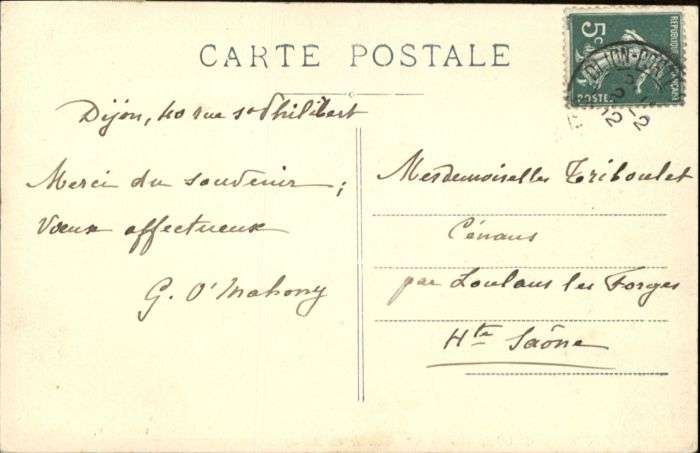 CARTE POSTALE
Dijon, 40 rue St Philibert
Merci du souvenir ;
Vœux affectueux
G. O'Mahony
Mesdemoiselles Triboulet
Cénans
par Loulans les Forges
Hte Saône
5c
REPUBLIQUE
FRANÇAISE
POSTES
DIJON